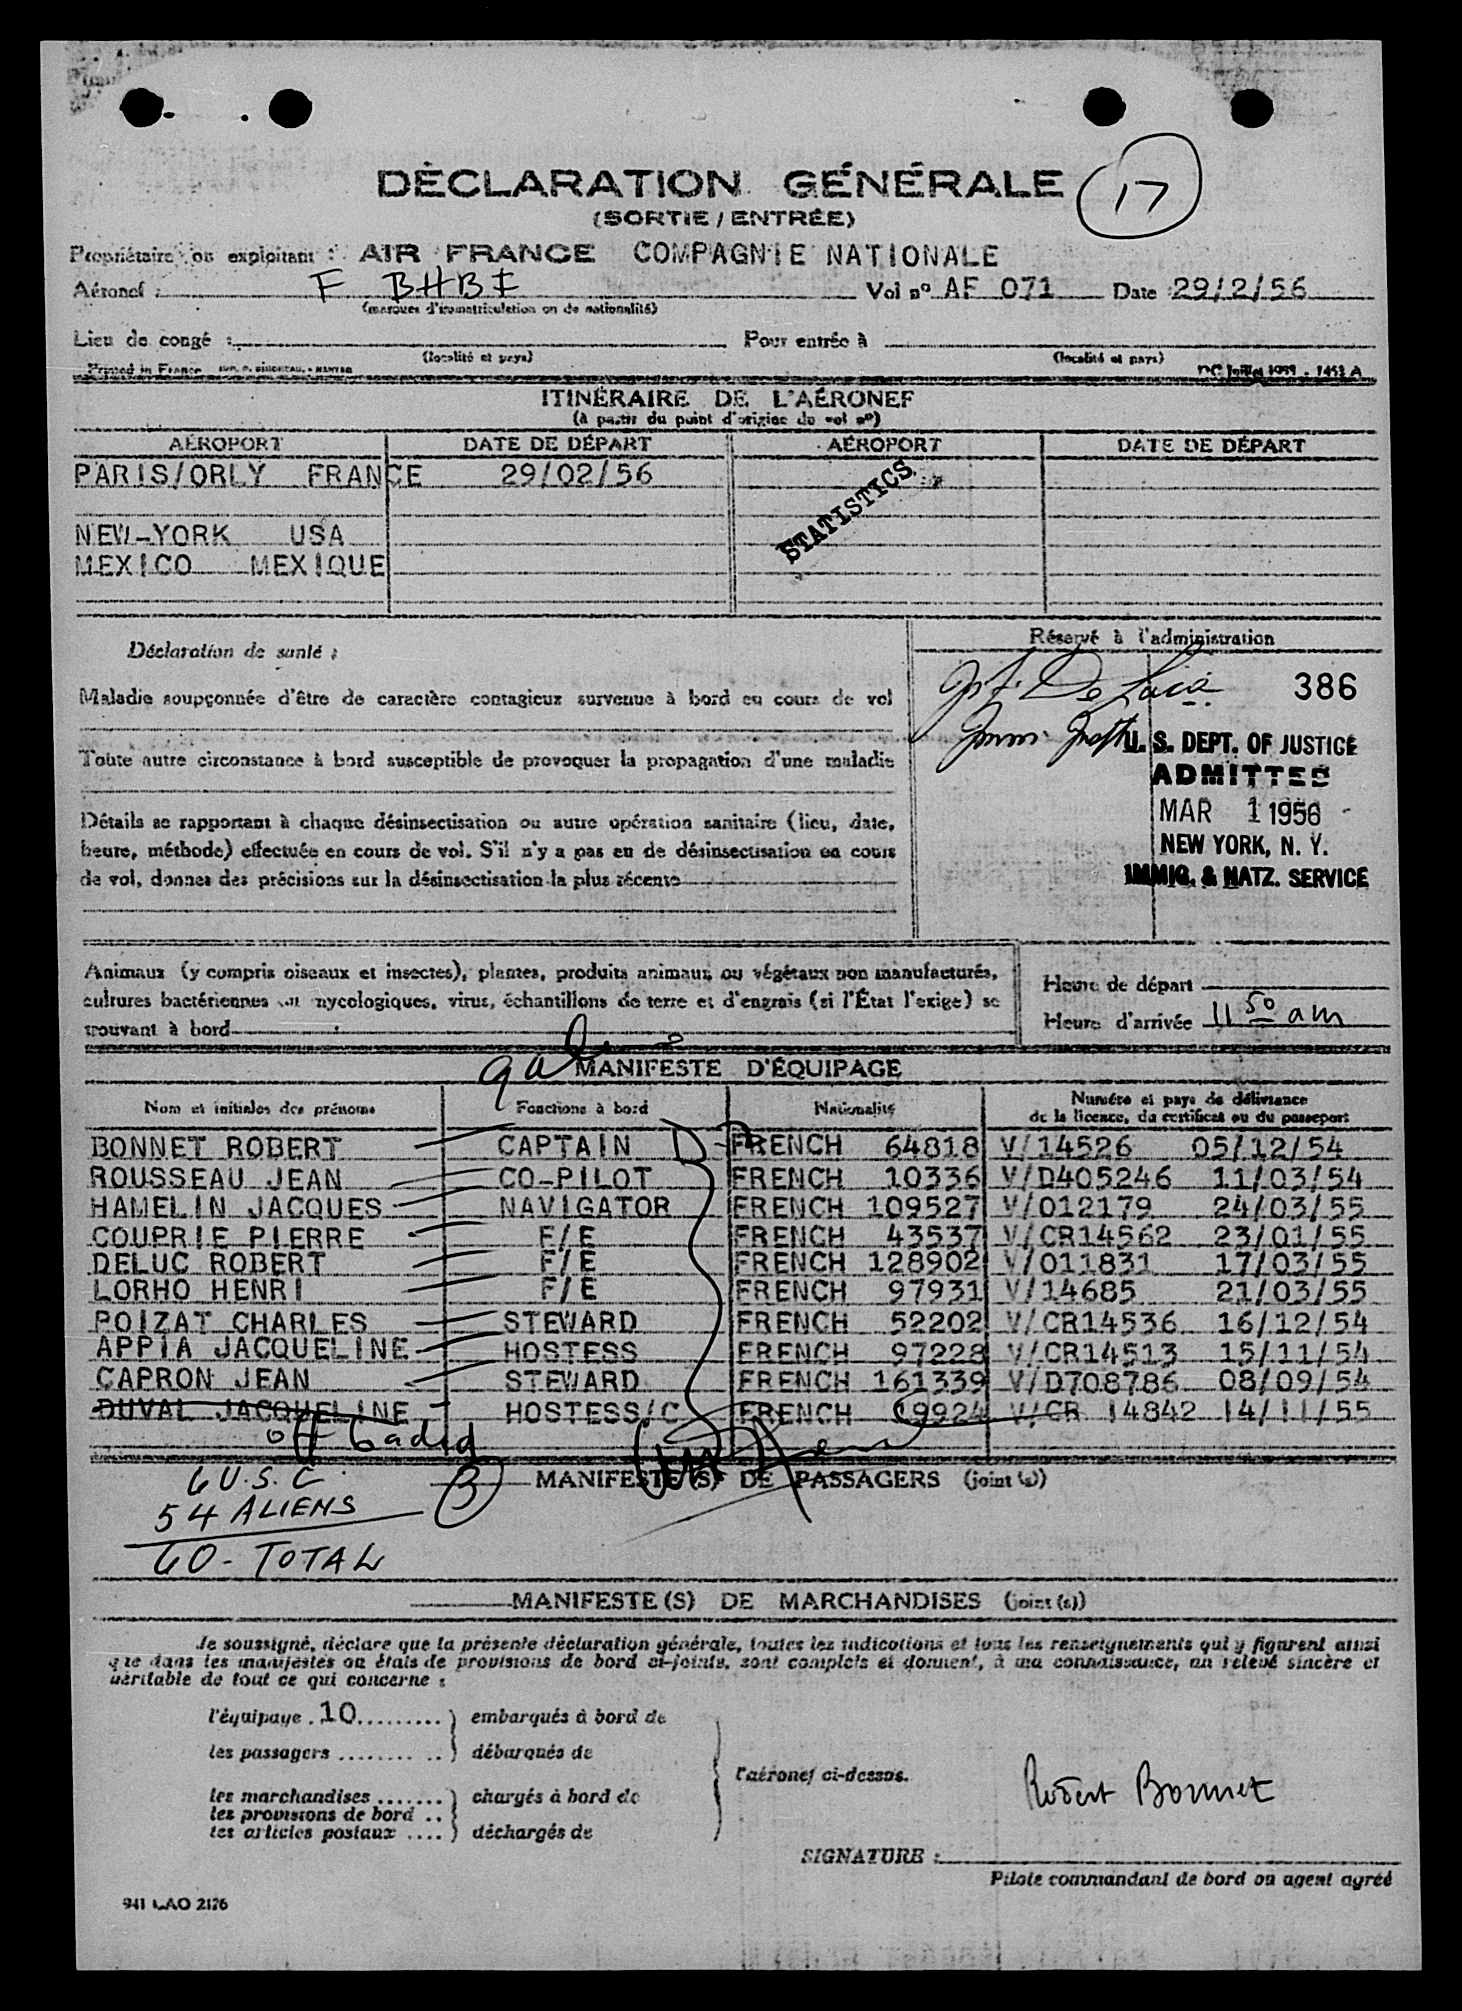 DÉCLARATION GÉNÉRALE
17
(SORTIE / ENTRÉE)
Propriétaire ou exploitant : AIR FRANCE COMPAGNIE NATIONALE
Aéronef : F BHBI Vol nº AF 071 Date 29/2/56
(marques d'immatriculation ou de nationalité)
Lieu de congé : Pour entrée à
(localité et pays) (localité et pays)
Printed in France DC Juillet 1955 - 1453 A
ITINÉRAIRE DE L'AÉRONEF
(à partir du point d'origine du vol nº)
AÉROPORT DATE DE DÉPART AÉROPORT DATE DE DÉPART
PARIS/ORLY FRANCE 29/02/56
STATISTICS
NEW-YORK USA
MEXICO MEXIQUE
Réservé à l'administration
Déclaration de santé :
386
Maladie soupçonnée d'être de caractère contagieux survenue à bord en cours de vol
U. S. DEPT. OF JUSTICE
Toute autre circonstance à bord susceptible de provoquer la propagation d'une maladie
ADMITTED
MAR 1 1956
NEW YORK, N. Y.
IMMIG. & NATZ. SERVICE
Détails se rapportant à chaque désinsectisation ou autre opération sanitaire (lieu, date,
heure, méthode) effectuée en cours de vol. S'il n'y a pas eu de désinsectisation en cours
de vol, donner des précisions sur la désinsectisation la plus récente
Animaux (y compris oiseaux et insectes), plantes, produits animaux ou végétaux non manufacturés,
cultures bactériennes ou mycologiques, virus, échantillons de terre et d'engrais (si l'État l'exige) se
trouvant à bord
Heure de départ
Heure d'arrivée 11 50 am
MANIFESTE D'ÉQUIPAGE
Nom et initiales des prénoms Fonctions à bord Nationalité Numéro et pays de délivrance
de la licence, du certificat ou du passeport
BONNET ROBERT CAPTAIN FRENCH 64818 V/14526 05/12/54
ROUSSEAU JEAN CO-PILOT FRENCH 10336 V/D405246 11/03/54
HAMELIN JACQUES NAVIGATOR FRENCH 109527 V/012179 24/03/55
COUPRIE PIERRE F/E FRENCH 43537 V/CR14562 23/01/55
DELUC ROBERT F/E FRENCH 128902 V/011831 17/03/55
LORHO HENRI F/E FRENCH 97931 V/14685 21/03/55
POIZAT CHARLES STEWARD FRENCH 52202 V/CR14536 16/12/54
APPIA JACQUELINE HOSTESS FRENCH 97228 V/CR14513 15/11/54
CAPRON JEAN STEWARD FRENCH 161339 V/D708786 08/09/54
DUVAL JACQUELINE HOSTESS/C FRENCH 19924 V/CR 14842 14/11/55
off loaded
6 U.S.C.
MANIFESTE(S) DE PASSAGERS (joint (s))
54 ALIENS
60 - TOTAL
MANIFESTE(S) DE MARCHANDISES (joint (s))
Je soussigné, déclare que la présente déclaration générale, toutes les indications et tous les renseignements qui y figurent ainsi
que dans les manifestes ou états de provisions de bord ci-joints, sont complets et donnent, à ma connaissance, un relevé sincère et
véritable de tout ce qui concerne :
l'équipage . 10 ......... ) embarqués à bord de
les passagers ........ .. ) débarqués de
l'aéronef ci-dessus.
les marchandises ....... ) chargés à bord de
les provisions de bord .. }
les articles postaux .... ) déchargés de
Robert Bonnet
SIGNATURE :
Pilote commandant de bord ou agent agréé
941 CAO 2126